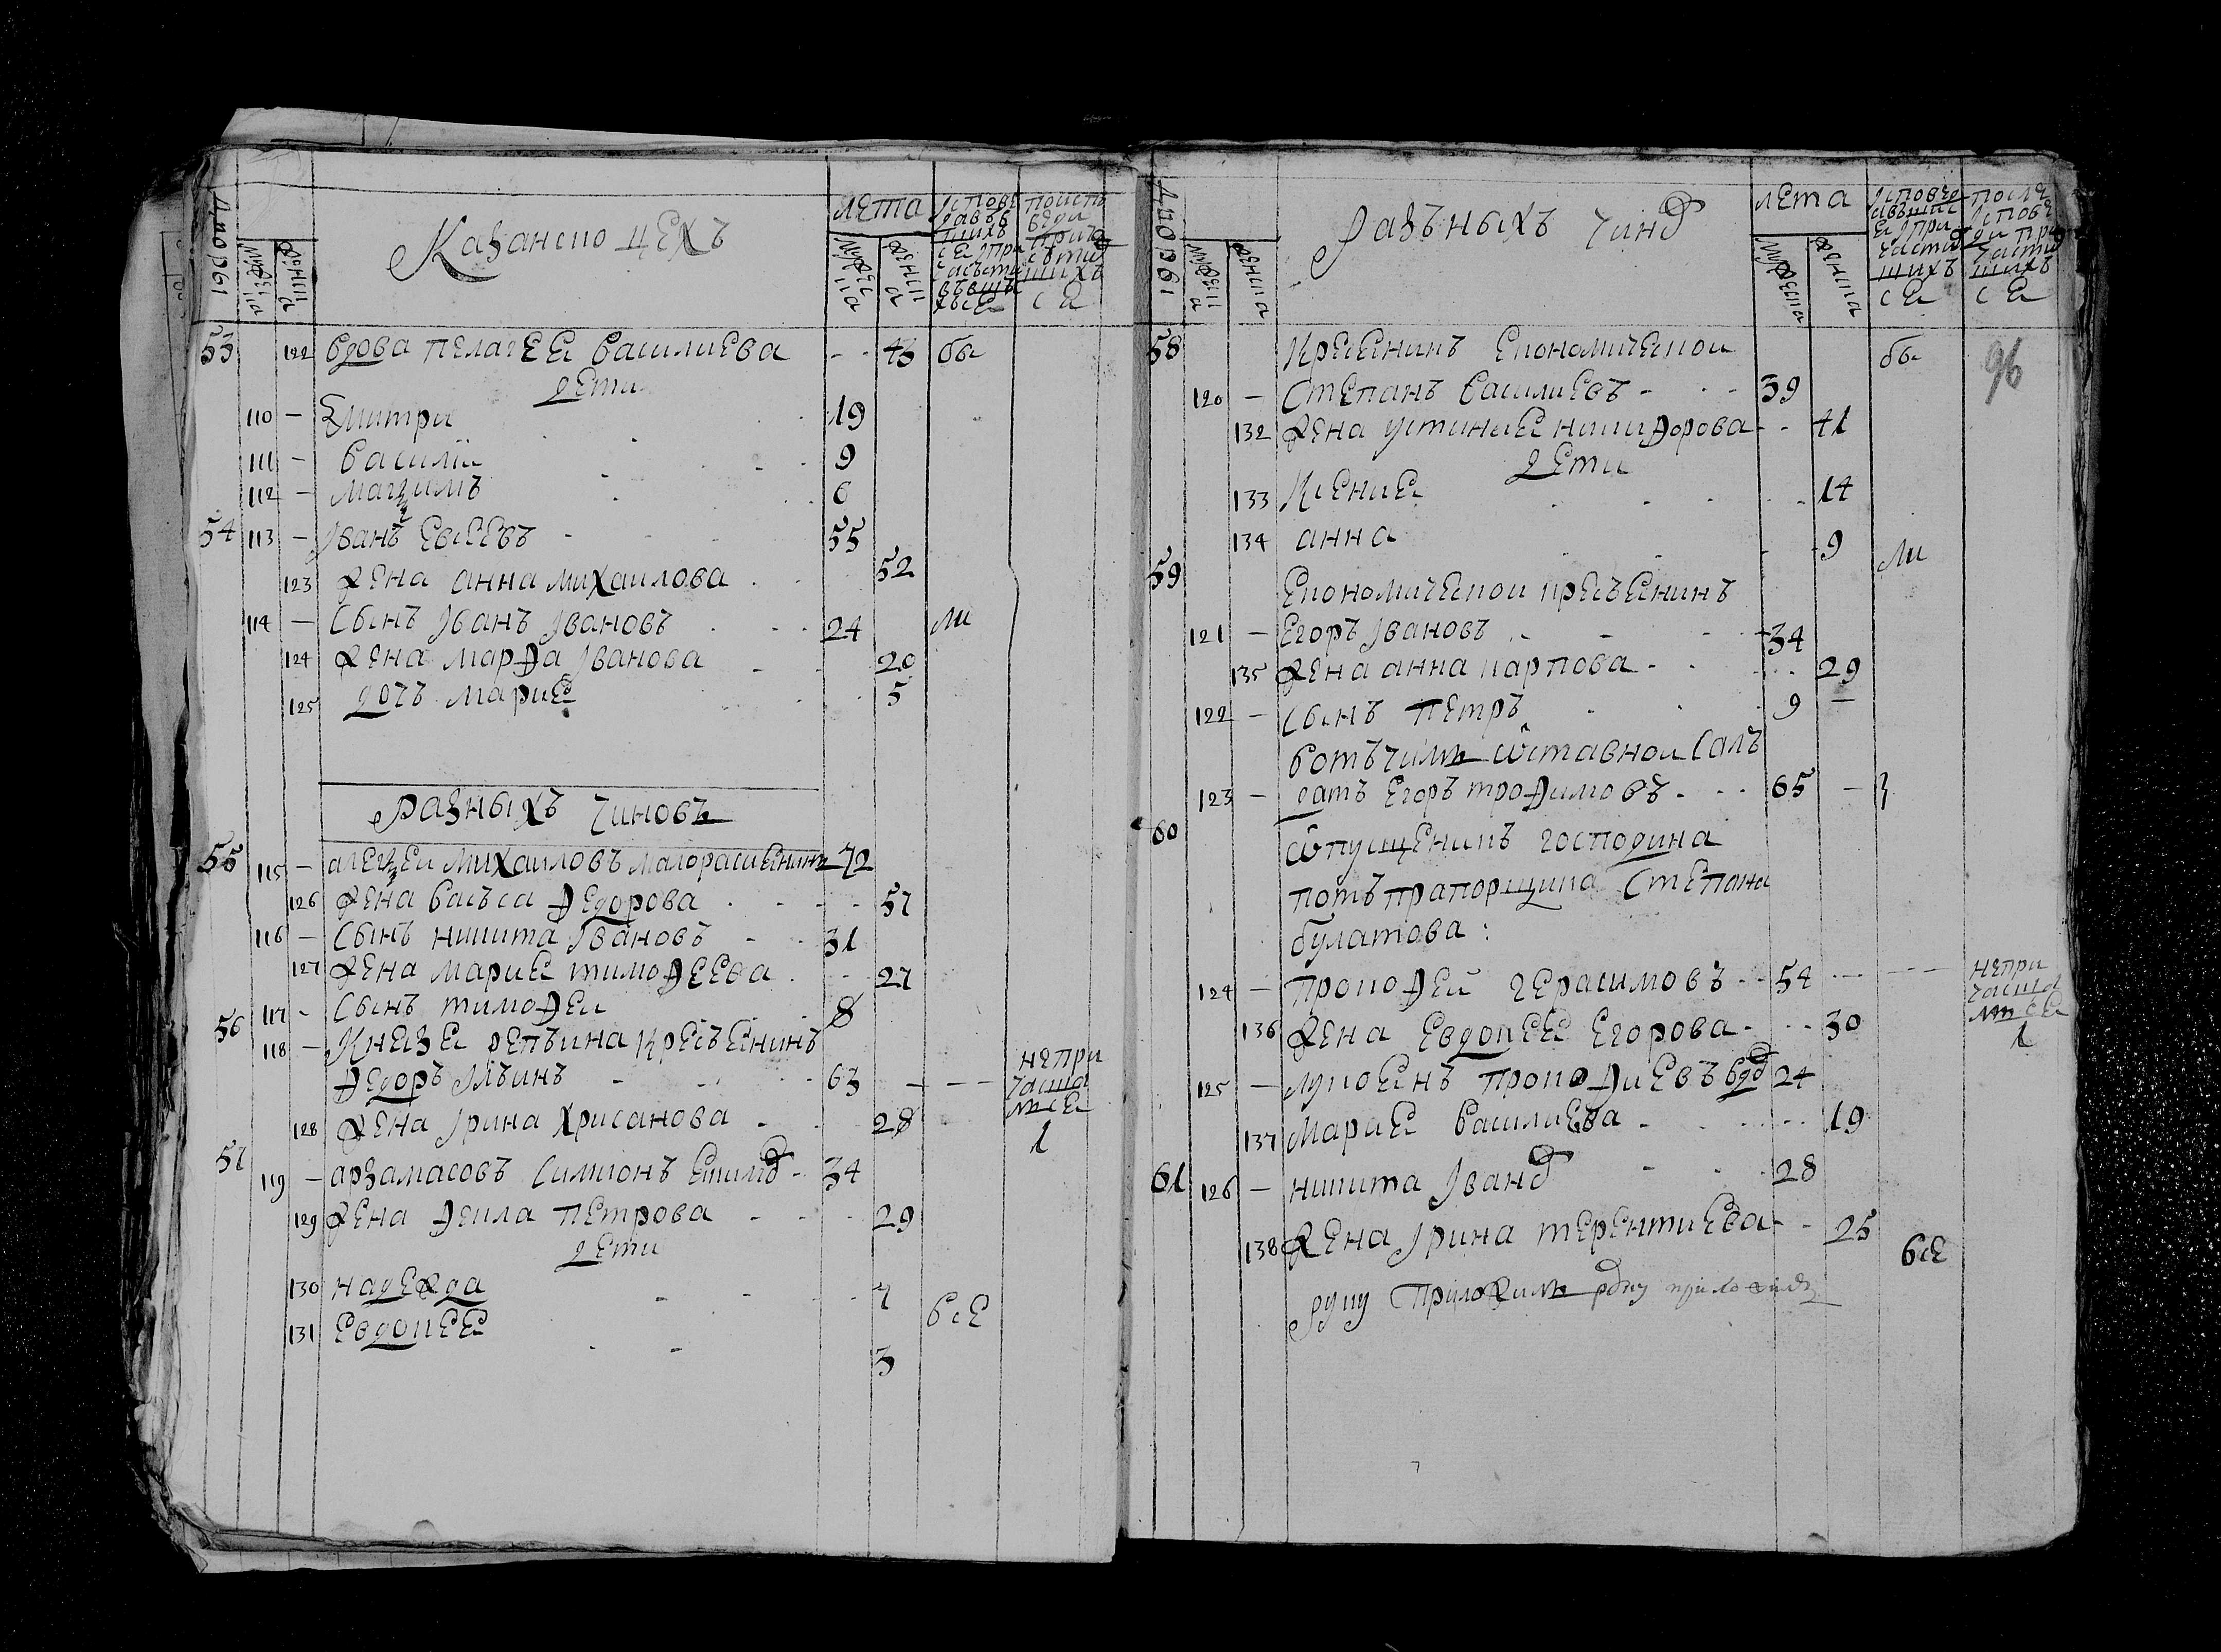 Дворы
мужеска
женска
Казанско цехъ
лета
мужеска
женска
53 122 вдова пелагея василиева 43 бы
дети
110 дмитри 19
111 василии 9
112 магзимъ 6
54 113 Іванъ евсеевъ 55
123 жена анна михаилова 52
114 сынъ Іванъ Івановъ 24 ли
124 жена марѳа Іванова 20
125 дочъ мария 5
разныхъ чиновъ
55 115 алегзеи михаиловъ малорасиянинъ 72
126 жена васъса ѳедорова 57
116 сынъ никита Івановъ 31
127 жена мария тимоѳеева 27
117 сынъ тимоѳеи 8
56 118 Князя репъвина кресъянинъ
ѳедоръ лвинъ 63 непри
чаща
тся
128 жена Ірина хрисанова 28 1
57 119 арзамасовъ симионъ 34
129 жена ѳекла петрова 29
дети
130 надежда 7
131 евдокея все
3
Дворы
мужеска
женска
разъныхъ чинов
лета
мужеска
женска
96
58 Кресянинъ економическои бы
120 степанъ василиевъ 39
132 жена устиния никиѳорова 41
дети
133 Ксения 14
134 анна 9
59 ли
економическои кресъянинъ
121 егоръ Івановъ 34
135 жена анна карпова 29
122 сынъ петръ 9
вотъчимъ ѿставнои салъ
123 датъ егоръ троѳимовъ 65
60
ѿпущеникъ господина
потъпрапорщика степана
булатова:
124 прокоѳей герасимовъ 54 непри
чаща
тся
136 жена евдокея егорова 30 1
125 лукоянъ прокоѳиевъ вдов 24
137 мария василиева 19
61 126 никита Іванов 28
138 жена Ірина терентиева 25
все
руку приложилъ